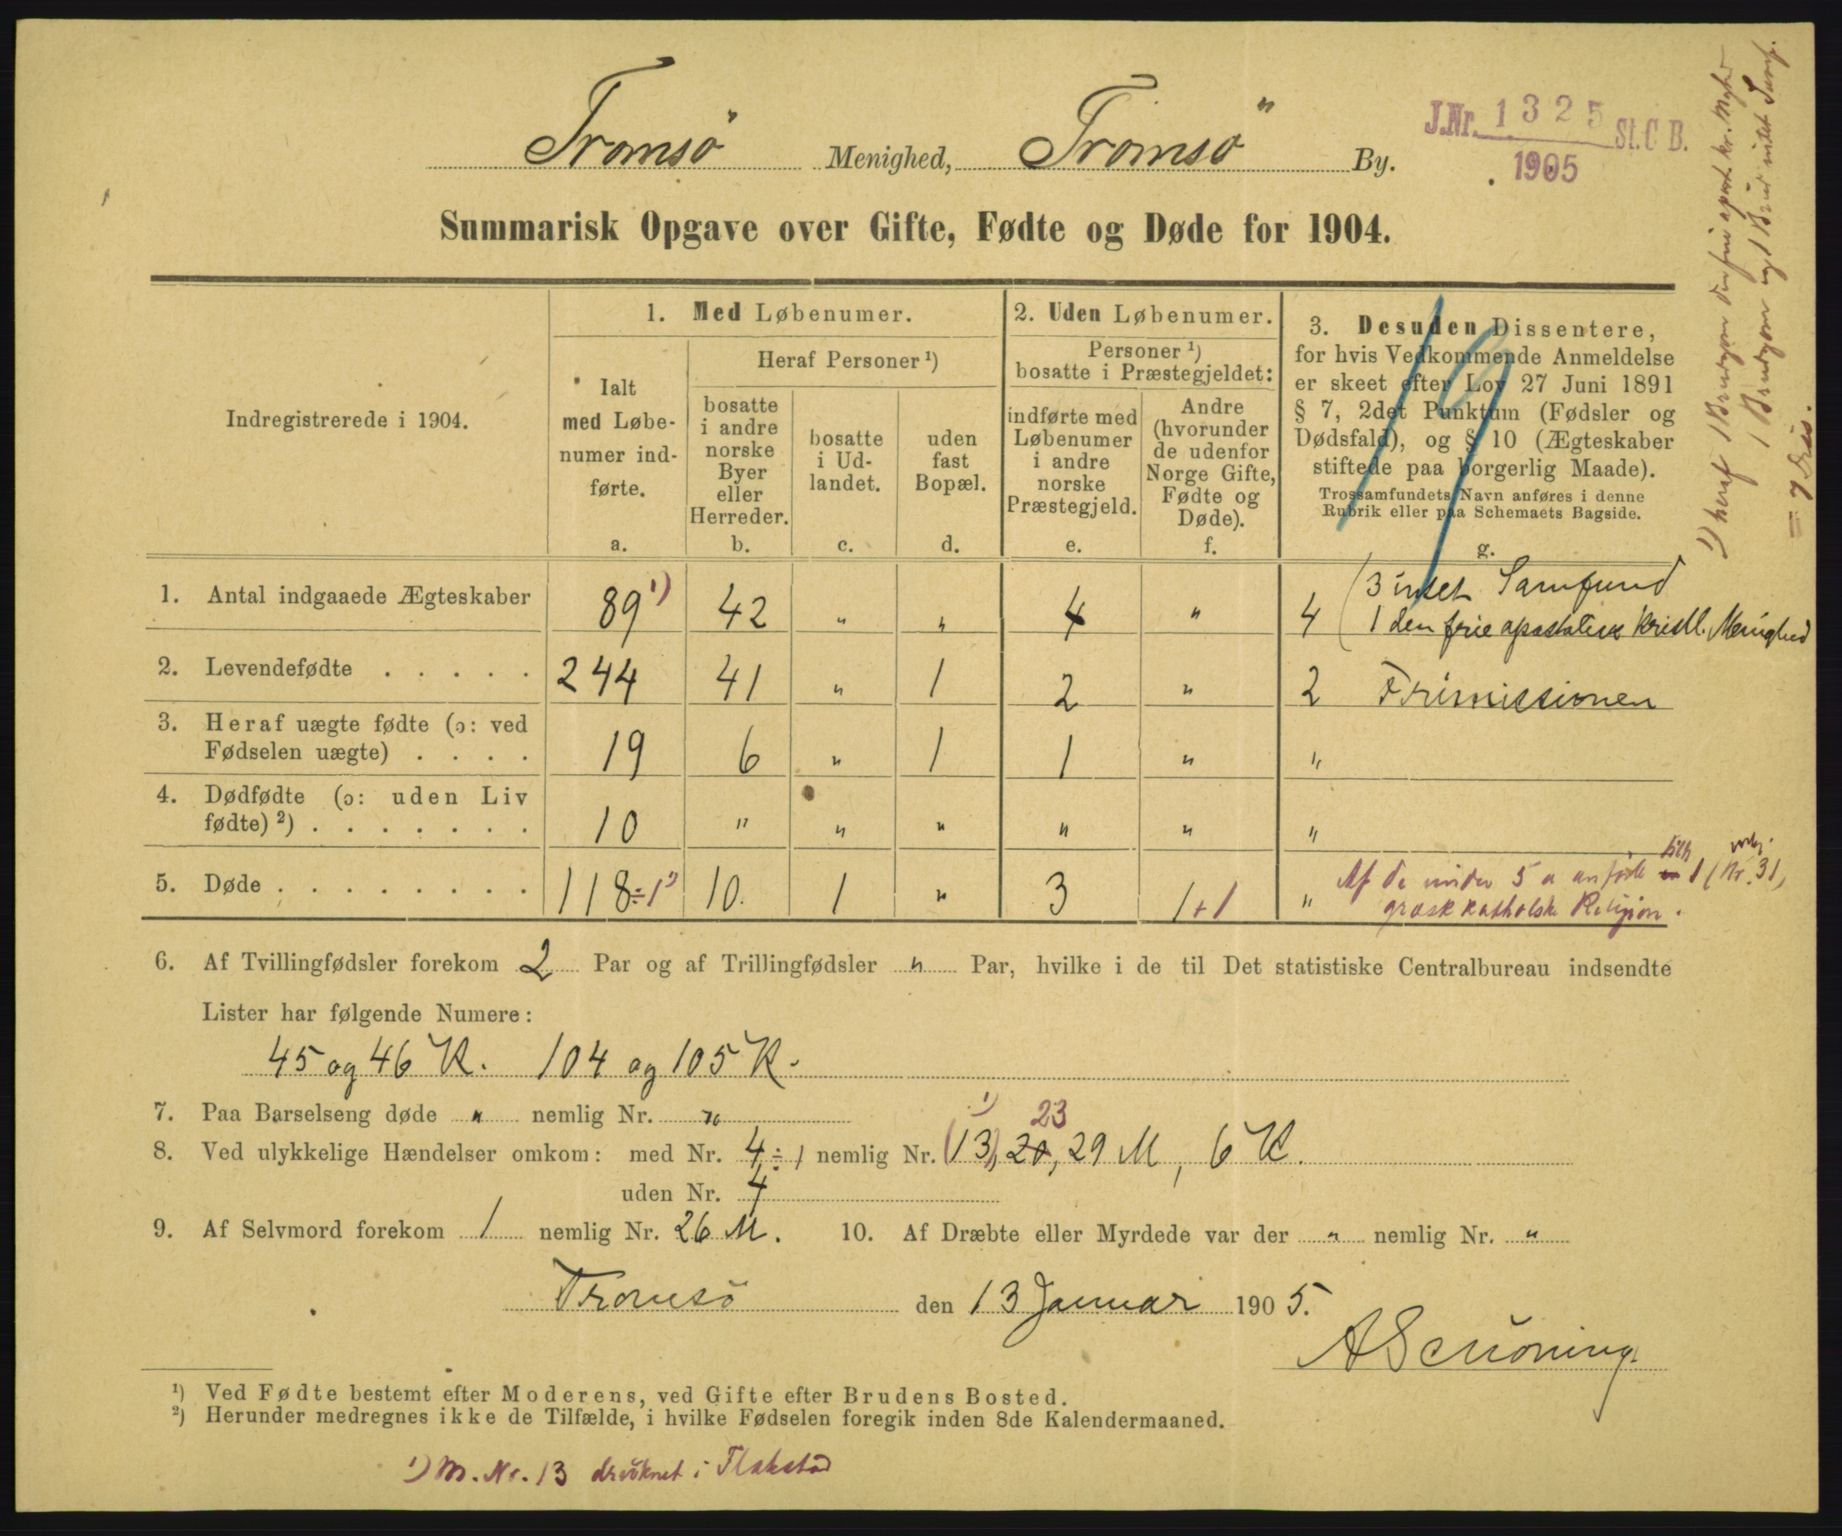 Tromsö Menighed, Tromsö By.
J.Nr. 1325 St. C B.
1905
Summarisk Opgave over Gifte, Fødte og Døde for 1904.
Indregistrerede i 1904.
1. Med Løbenumer.
Ialt med Løbenumer indførte.
a.
Heraf Personer ¹)
bosatte i andre norske Byer eller Herreder.
b.
bosatte i Udlandet.
c.
uden fast Bopæl.
d.
2. Uden Løbenumer.
Personer ¹) bosatte i Præstegjeldet:
indførte med Løbenumer i andre norske Præstegjeld.
e.
Andre (hvorunder de udenfor Norge Gifte, Fødte og Døde).
f.
3. Desuden Dissentere,
for hvis Vedkommende Anmeldelse
er skeet efter Lov 27 Juni 1891
§ 7, 2det Punktum (Fødsler og
Dødsfald), og § 10 (Ægteskaber
stiftede paa borgerlig Maade).
Trossamfundets Navn anføres i denne
Rubrik eller paa Schemaets Bagside.
g.
1. Antal indgaaede Ægteskaber 89 ¹) 42 „ „ 4 „ 4 (3 intet Samfund
1 den frie apostolisk kristl. Menighed
2. Levendefødte . . . . . 244 41 „ 1 2 „ 2 Frimissionen
3. Heraf uægte fødte (ɔ: ved
Fødselen uægte) . . . . 19 6 „ 1 1 „ „
4. Dødfødte (ɔ: uden Liv
fødte) ²) . . . . . . . 10 „ „ „ „ „ „
5. Døde . . . . . . . . 118 ÷ 1 ¹) 10. 1 „ 3 1 + 1 „
Af de under 5 a anførte 1 (Nr. 31,
græsk katholske Religion.
6. Af Tvillingfødsler forekom 2 Par og af Trillingfødsler „ Par, hvilke i de til Det statistiske Centralbureau indsendte
Lister har følgende Numere:
45 og 46 K. 104 og 105 K.
7. Paa Barselseng døde „ nemlig Nr. „
8. Ved ulykkelige Hændelser omkom: med Nr. 4 ÷ 1 nemlig Nr. ¹) (13), 20, 23 29 M, 6 K.
uden Nr. 4
9. Af Selvmord forekom 1 nemlig Nr. 26 M. 10. Af Dræbte eller Myrdede var der „ nemlig Nr. „
Tromsö den 13 Januar 1905.
A Schöning
¹) Ved Fødte bestemt efter Moderens, ved Gifte efter Brudens Bosted.
²) Herunder medregnes ikke de Tilfælde, i hvilke Fødselen foregik inden 8de Kalendermaaned.
¹) M. Nr. 13 druknet i Flakstad
¹) heraf 1 Brudgom den frie apost. kr. Mghd
1 Brudgom og 1 Brud intet Samf.
19